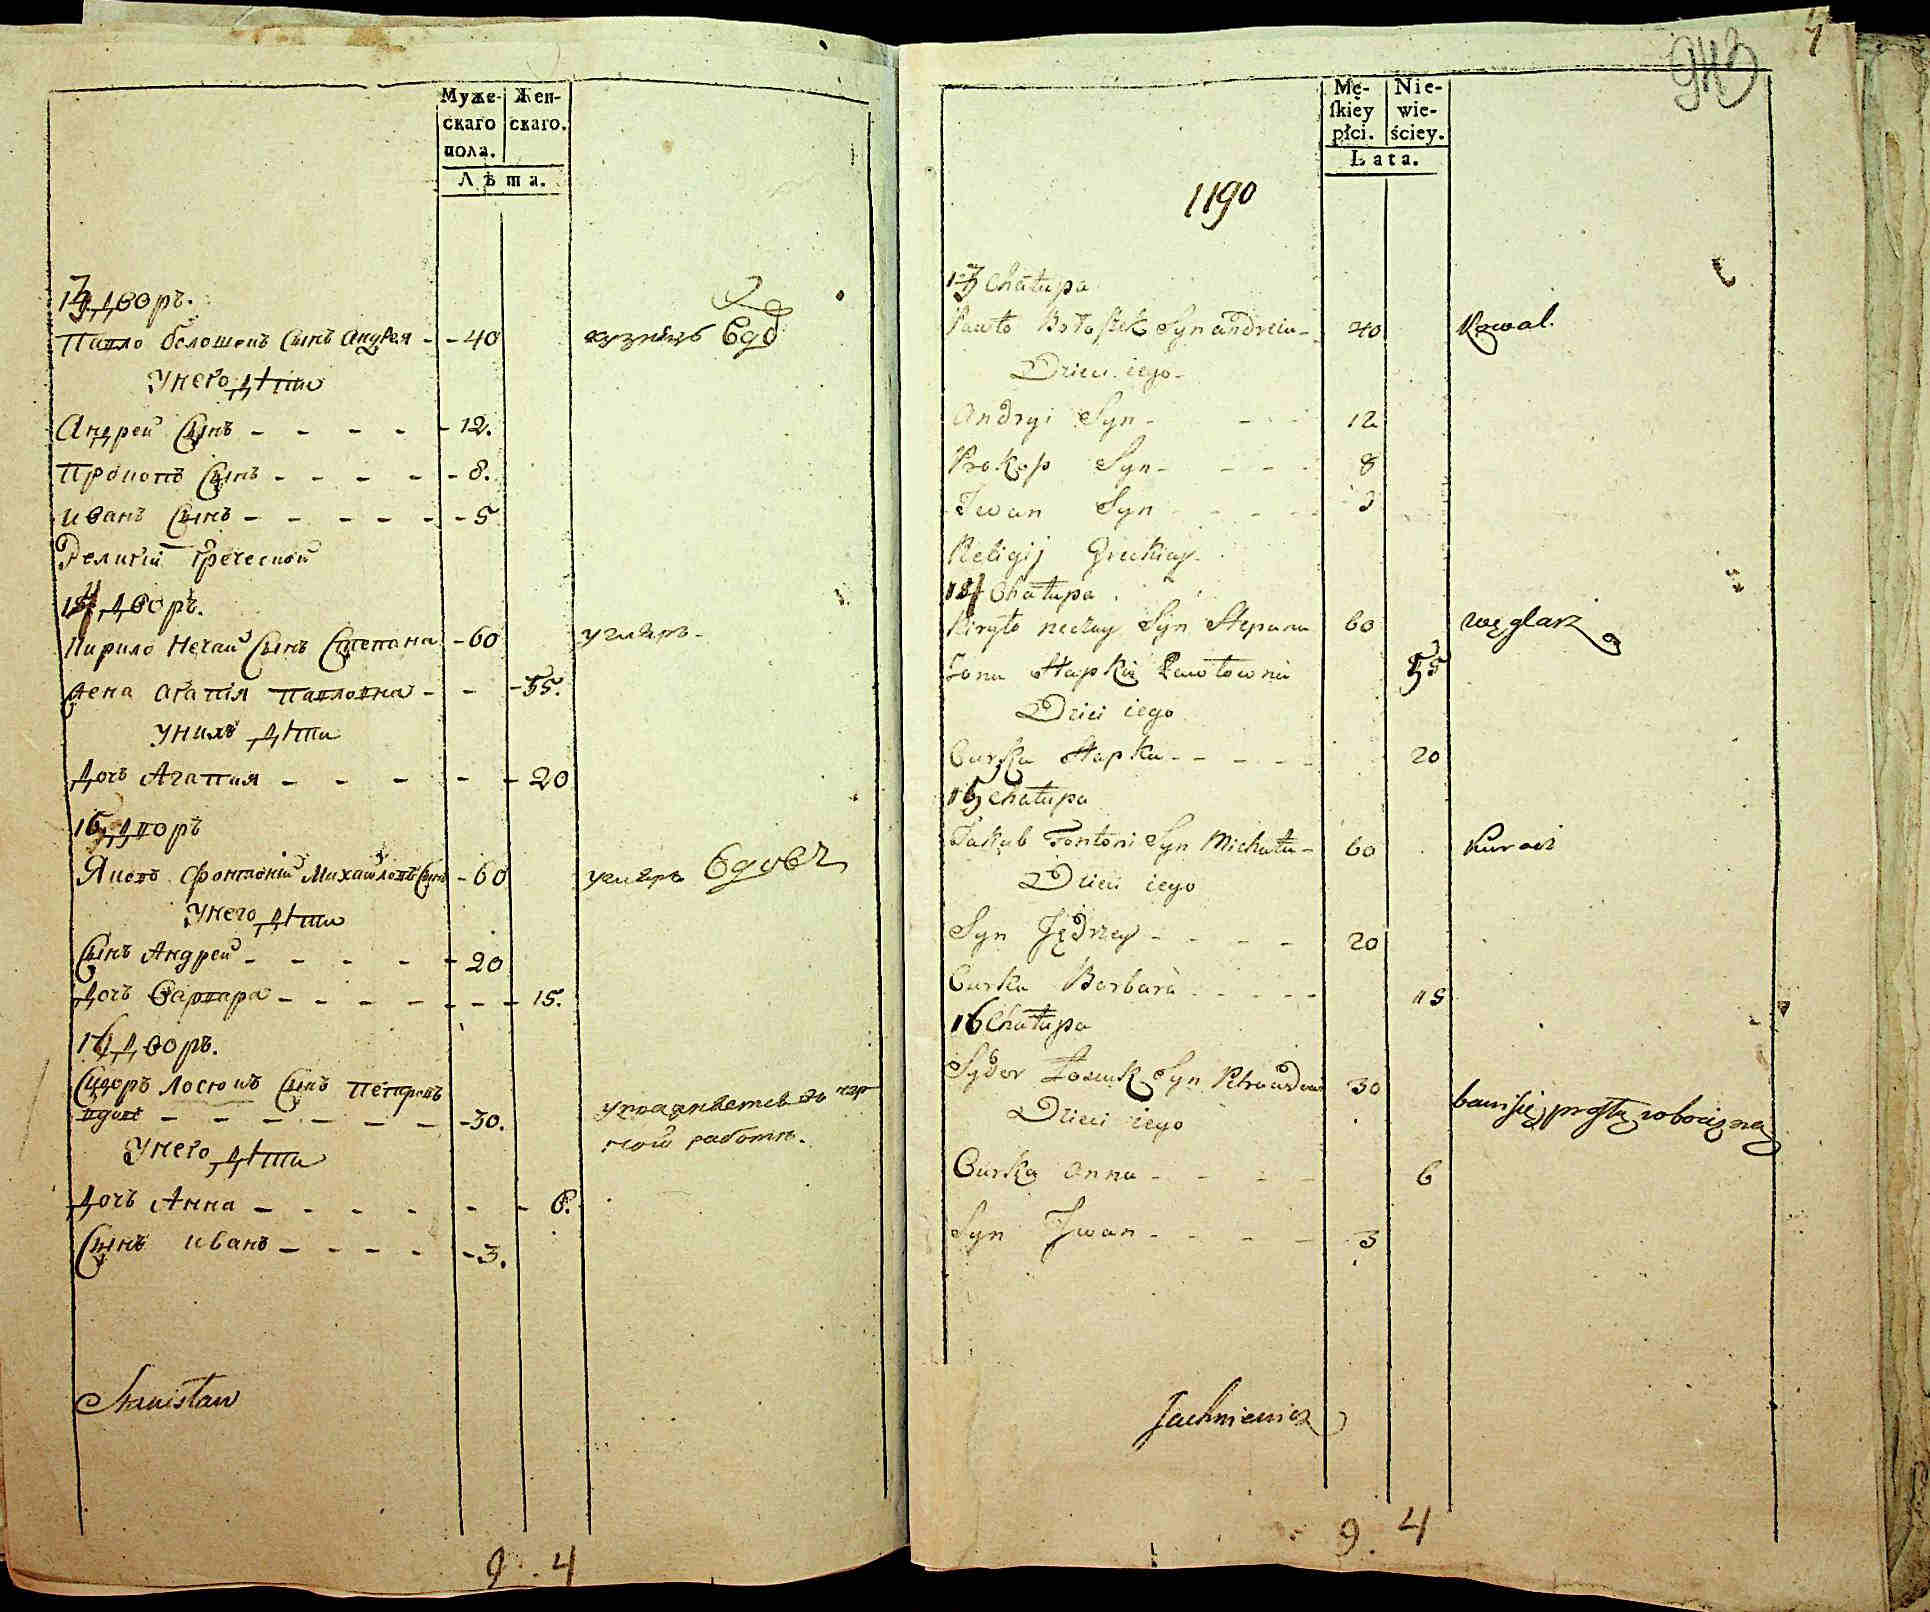 Муже-
скаго
пола.
Жен-
скаго.
Лѣта.
13 Дворъ.
Павло Белошенъ Сынъ Андрея - - 40 кузнецъ
Унего Дѣти
Андрей Сынъ - - - - - 12.
Прокопъ Сынъ - - - - - 8.
Иванъ Сынъ - - - - - - 5
Религіи Греческой
14 Дворъ.
Кирило Нечай Сынъ Степана - 60 углярь -
Жена Агапія Павловна - - - 55.
Унихъ Дѣти
Дочь Агапия - - - - - 20
15 Дворъ
Яковъ Фонтоній Михайловъ Сынъ - 60 углярь вдовец
Унего Дѣти
Сынъ Андрей - - - - - 20
Дочь Варвара - - - - - - - 15.
16 Дворъ.
Сидоръ Лосюкъ Сынъ Петровъ
- - - - - - - 30.
работѣ.
Унего Дѣти
Дочь Анна - - - - - - 6.
Сынъ Иванъ - - - - - 3.
Stanisław
9. 4
943
Mę-
skiey
płci.
Nie-
wie-
ściey.
Lata.
1190
13 Chałupa
Pawło Syn Andreia - 40 Kowal.
Dzieci iego -
Andryi Syn - - - 12
Prokop Syn - - - - 8
Iwan Syn - - - -
Religij Greckiey
14 Chałupa
Kiryło Neczay Syn Stepana 60 węglarz
Żona Hapka Pawłowna 55
Dzieci iego
Curka Hapka - - - - - 20
15 Chałupa
Jakub Fontoni Syn Michała - 60
Dzieci iego
Syn Jędrzey - - - - 20
Curka Barbara - - - - - 15
16 Chałupa
Sydor Łosiuk Syn 30 bawi się prostą robocizną
Dzieci iego
Curka Anna - - - - 6
Syn Iwan - - - - 3
Jachniewicz
9. 4